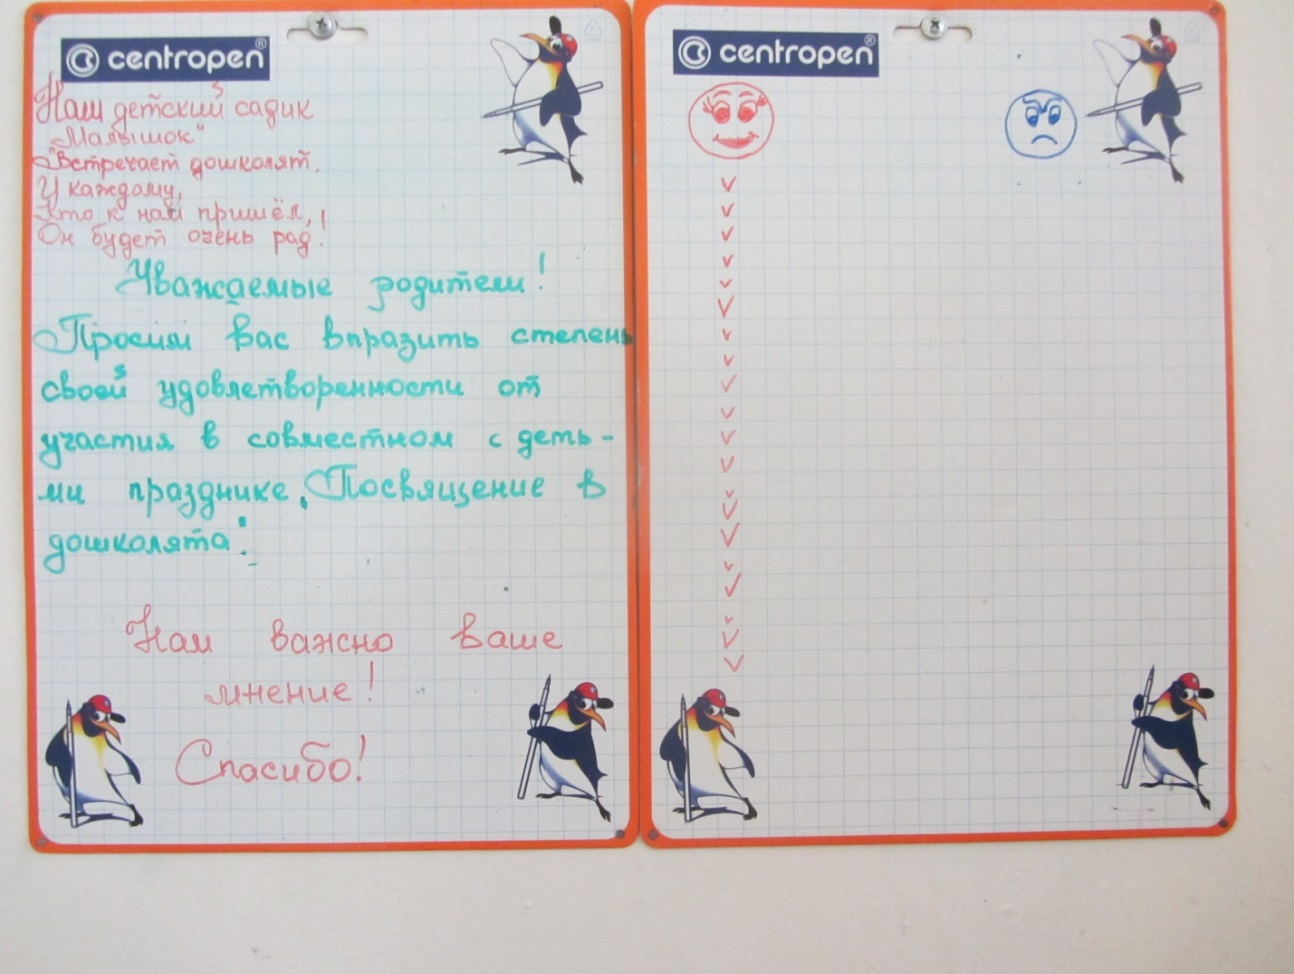 centropen®
Наш детский садик
„Малышок“
Встречает дошколят.
У каждому,
Кто к нам пришёл,
Он будет очень рад!
Уважаемые родители!
Просим вас впразить степень
своей удовлетворенности от
участия в совместном с деть-
ми празднике „Посвящение в
дошколята".
Нам важно ваше
мнение!
Спасибо!
centropen®